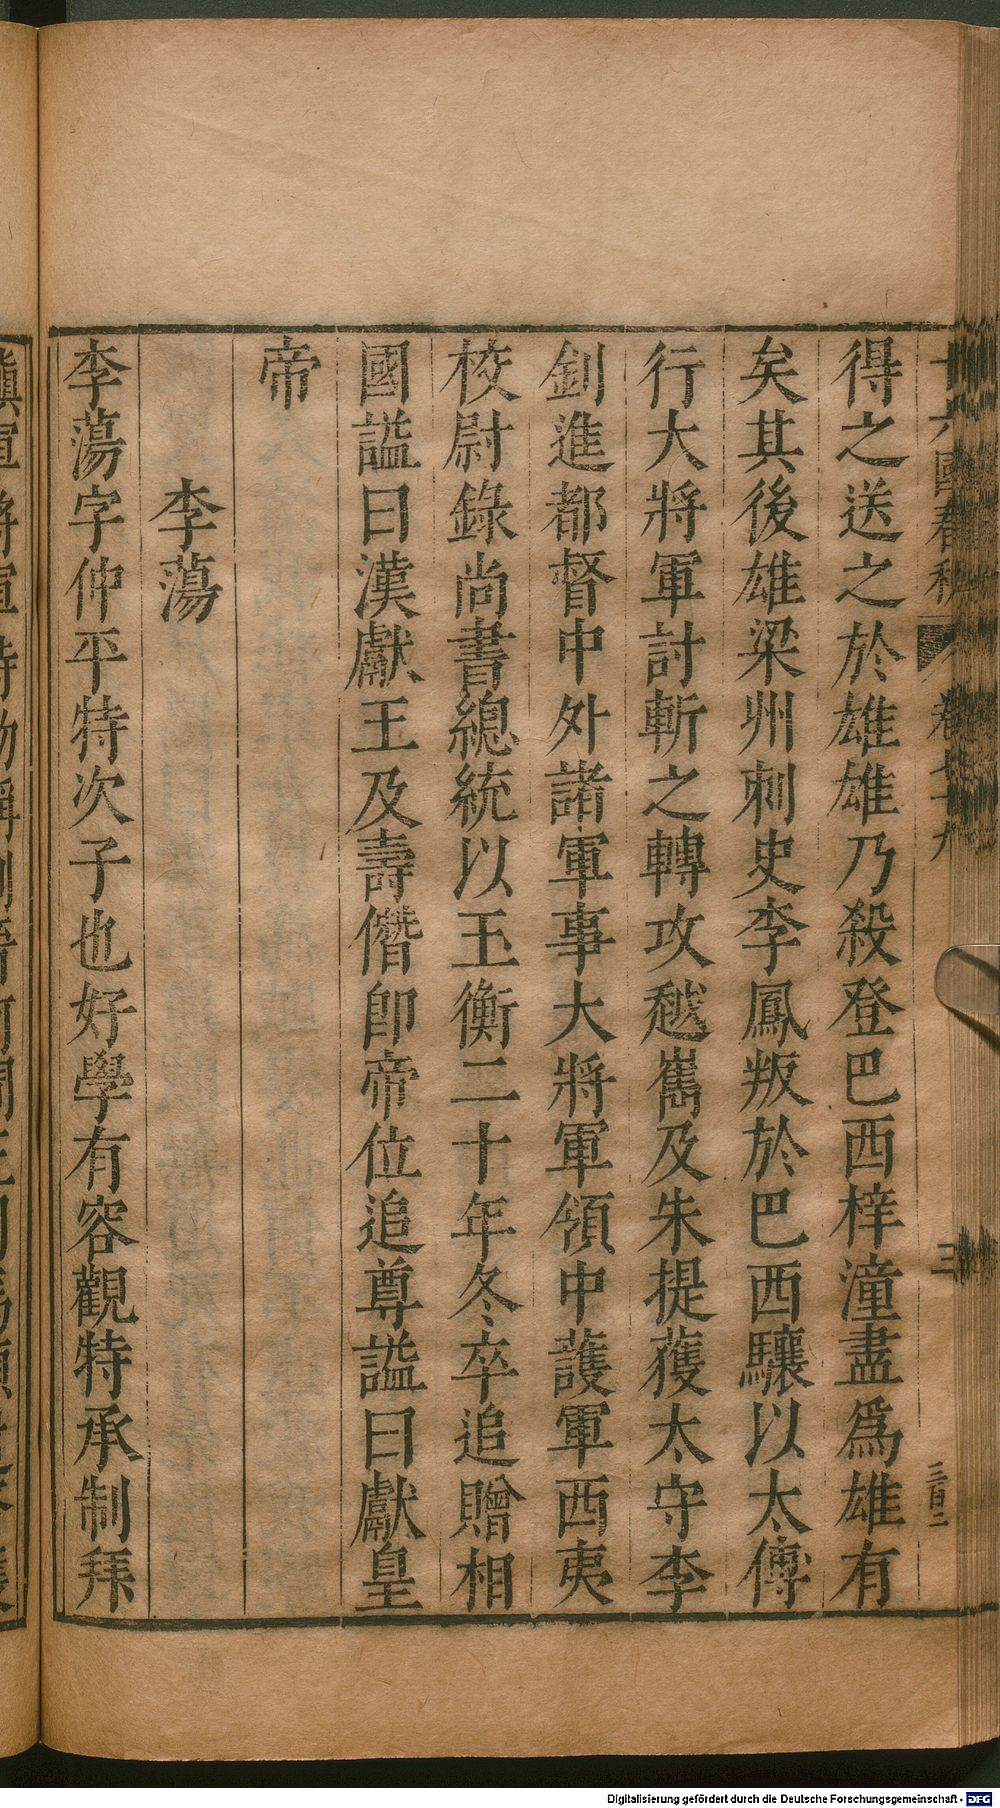 十六國春秋 卷七十九 三 三百二
得之送之於雄雄乃殺登巴西梓潼盡爲雄有
矣其後雄梁州刺史李鳳叛於巴西驤以太傅
行大將軍討斬之轉攻越嶲及朱提獲太守李
釗進都督中外諸軍事大將軍領中護軍西夷
校尉錄尚書總統以玉衡二十年冬卒追贈相
國謚曰漢獻王及壽僭即帝位追尊謚曰獻皇
帝
李蕩
李蕩字仲平特次子也好學有容觀特承制拜
Digitalisierung gefördert durch die Deutsche Forschungsgemeinschaft - DFG